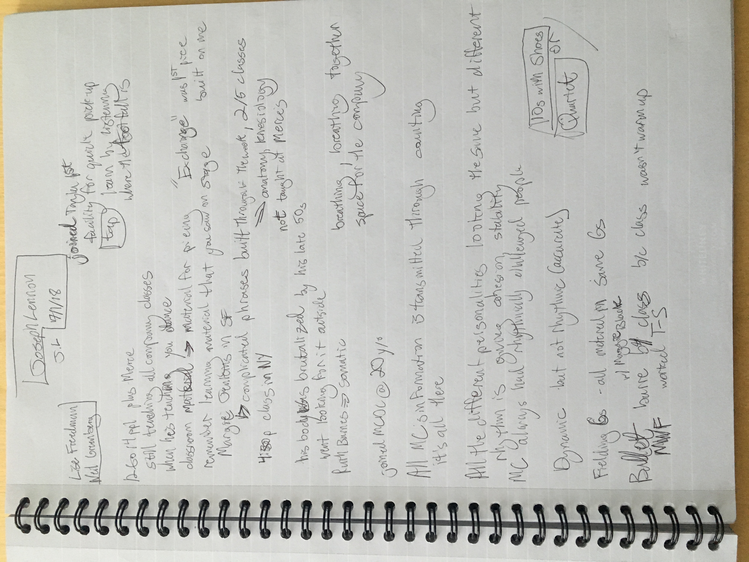 Joseph Lennon
J.L 9/7/18
Lise Friedman
Neil Greenberg
joined Twyla 1st
facility for quick pick-up
tap learn by listening
where the foot fall is
12-60 14 ppl plus Merce
still teaching all company classes
when he's teaching you dance
classroom material → material for piece
"Exchange" was 1st piece
built on me
remember learning material that you saw on stage
Margie Jenkins in SF
↳ complicated phrases built through the week, 2/5 classes
→ anatomy, kinesiology
not taught at Merce's
4:30p class in NY
his body was brutalized by his late 50s
went looking for it outside
Ruth Barnes → somatic
breathing, breathing together
space for the company
joined MCDC @ 20 y/o
All MC's information is transmitted through counting
it's all there
All the different personalities looking the same but different
rhythm is giving cohesion, stability
MC always had rhythmically challenged people
Dynamic but not rhythmic (accurate)
10s with Shoes
or
Quartet
Fielding 6s - all material in same 6s
w/ Maggie Black
Ballet barre by class b/c class wasn't warm up
MWF worked T-S